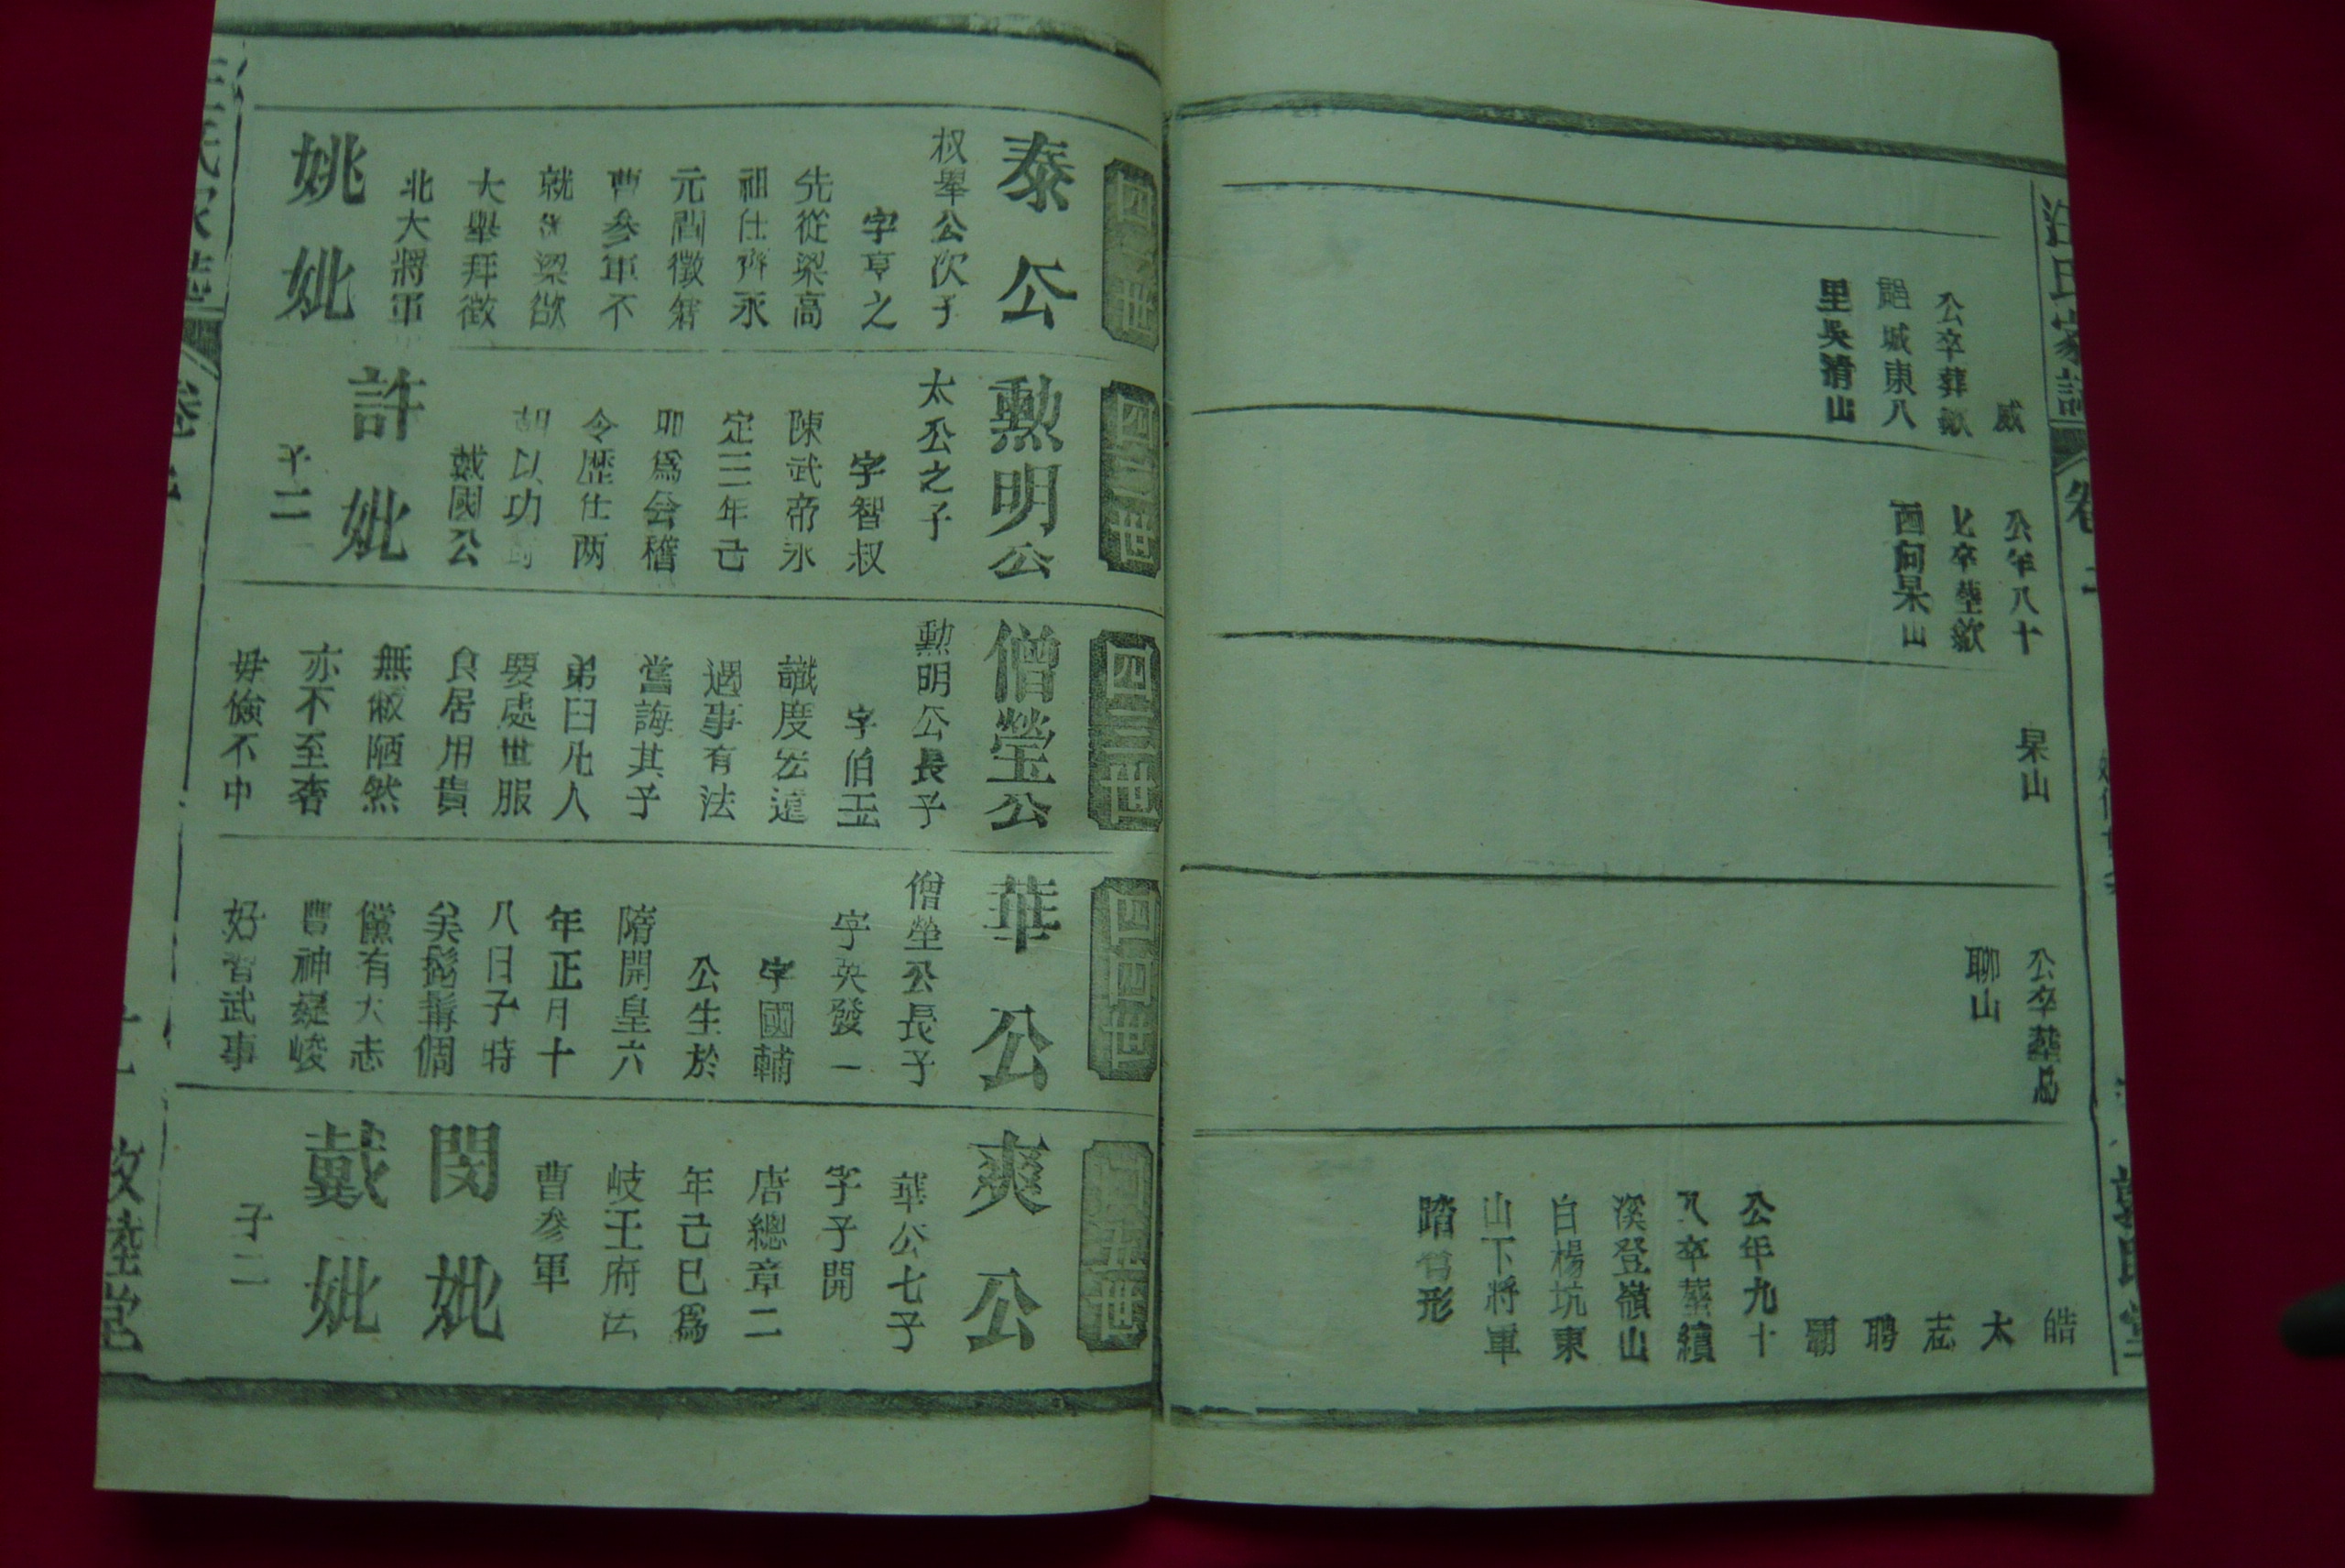 汪氏家譜
卷
威
公卒葬歙
邑城東八
里吳清山
公年八十
七卒塟歙
西向杲山
杲山
公卒葬
聊山
皓
太
志
聘
公年九十
八卒葬績
溪登嶺山
白楊坑東
山下將軍
踏形
四世
泰公
叔舉公次子
字章之
先從梁高
祖仕齊永
元間徵辟
曹參軍不
就後梁欲
大舉拜徵
北大將軍
姚妣
四二世
勲明公
太公之子
字智叔
陳武帝永
定三年己
卯爲会稽
令歴仕两
朝以功
戴國公
許妣
子二
四三世
僧瑩公
勲明公長子
字伯玉
識度宏遠
遇事有法
嘗誨其子
弟曰凡人
要處世服
食居用貴
無敝陋然
亦不至奢
毋儉不中
四四世
華公
僧瑩公長子
字英發一
字國輔
公生於
隋開皇六
年正月十
八日子時
矣髫髯倜
儻有大志
豐神嶷峻
好習武事
四五世
爽公
華公七子
字子開
唐總章二
年己巳爲
岐王府法
曹參軍
閔妣
戴妣
子二
敦睦堂